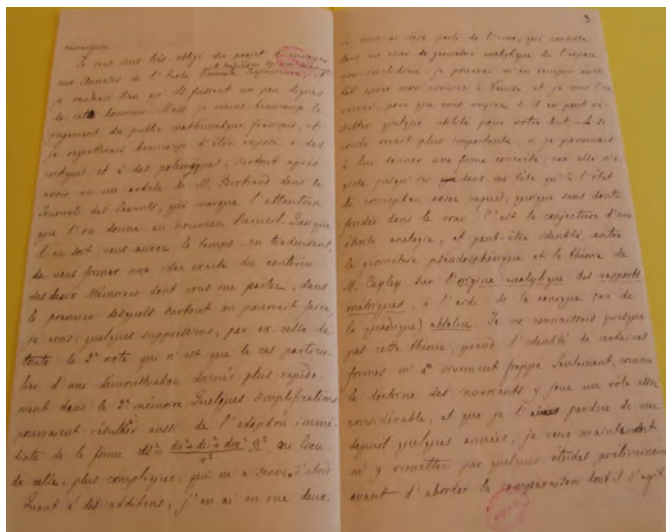 remarques.
Je vous suis très-obligé du projet d'envoyer
aux Annales de l'Ecole Normale Supérieure, et
je voudrais bien qu'ils fussent un peu dignes
de cet honneur. Mais je crains beaucoup le
jugement du public mathématique français, et
je regretterais beaucoup d'être exposé à des
critiques et à des polémiques, surtout après
avoir vu un article de M. Bertrand dans le
Journal des Savants, qui marque l'attention
que l'on donne au nouveau Recueil. Quoique
il en soit vous aurez le temps, en traduisant,
de vous former une idée exacte du contenu
des deux Mémoires dont vous me parlez, dans
le premier desquels surtout on pourrait faire,
je crois, quelques suppressions, par ex. celle de
toute la 2e note qui n'est que le cas particu-
lier d'une démonstration donnée plus rapide-
ment dans le 2e mémoire. Quelques simplifications
pourraient résulter aussi de l'adoption immé-
diate de la forme ds² = R², au lieu
de celle, plus compliquée, qui m'a servi d'abord.
Quant à des additions, j'en ai en vue deux.
3
Je vous ai déjà parlé de l'une, qui consiste
dans un essai de géométrie analytique de l'espace
non-euclidien: je pourrai m'en occuper aussi-
tôt après mon arrivée à Venise et je vous l'en-
verrai, pour que vous voyiez s'il en peut ré-
sulter quelque utilité pour votre but. La se-
conde serait plus importante, si je parvenais
à lui donner une forme concrète, car elle n'e-
xiste jusqu'ici dans ma tête qu'à l'état
de conception assez vague, quoique sans doute
fondée dans le vrai. C'est la conjecture d'une
étroite analogie, et peut-être identité, entre
la géométrie pseudosphérique et la théorie de
M. Cayley sur l'origine analytique des rapports
métriques, à l'aide de la conique (ou de
la quadrique) absolue. Je ne connaissais presque
pas cette théorie, quand l'identité de certaines
formes m'a vivement frappé. Seulement, comme
la doctrine des invariants y joue un rôle assez
considérable, et que je l'ai perdue de vue
depuis quelques années, je veux maintenant
m'y remettre par quelques études préliminaires
avant d'aborder la comparaison dont il s'agit.